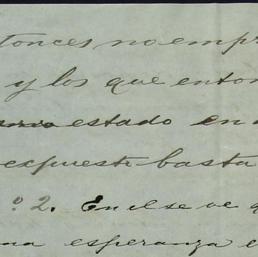 tonces no empr
y los que enton
estado en
expuesto basta
º 2. En el se ve q
na esperanza e